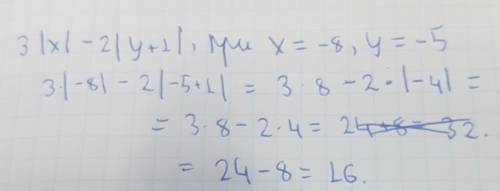 3|x| - 2|y+1|, при x = -8, y = -5
3·|-8| - 2|-5+1| = 3·8 - 2·|-4| =
= 3·8 - 2·4 = 24+8=32.
= 24-8 = 16.